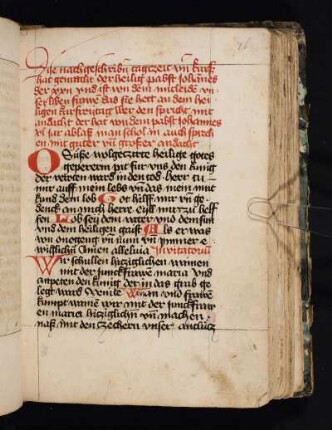 Dise nachgeschriben tagezeit vnd
hat gemacht der heilig pabst Johannes
der xxii vnd ist von dem mitleide vn
ser liben frawen das sie hett an dem hei
ligen karfreitag wer den spricht mit
andacht der hat von dem pabst Johannes
iar ablas man schol in auch sprech
en mit guter vnd grosser andacht
O Susse wolgezirte heilige gotes
gepererin pit fur vns den kunig
der verten ward in den tod herr tu
mir auff mein lebs vnd das mein mut
kund dein lob Got hilff mir vnd ge
denck an mich herre eyll mir zu helf
fen Lob sey dem vater vnd dem sun
vnd dem heiligen gaist Als er was
von anegeng vnd nun vnd ymmer e
wiglich Amen alleluia Inuitatorium
Wir schullen hiczigklichen wainen
mit der junckfrawe maria vnd
anpeten den kunig der in das grab ge
legt ward Venite Man vnd frawe
kumpt wainet wir mit der junckfraw
en maria hiczigklichen vnd machen
naß mit den zechern vnser antlucz